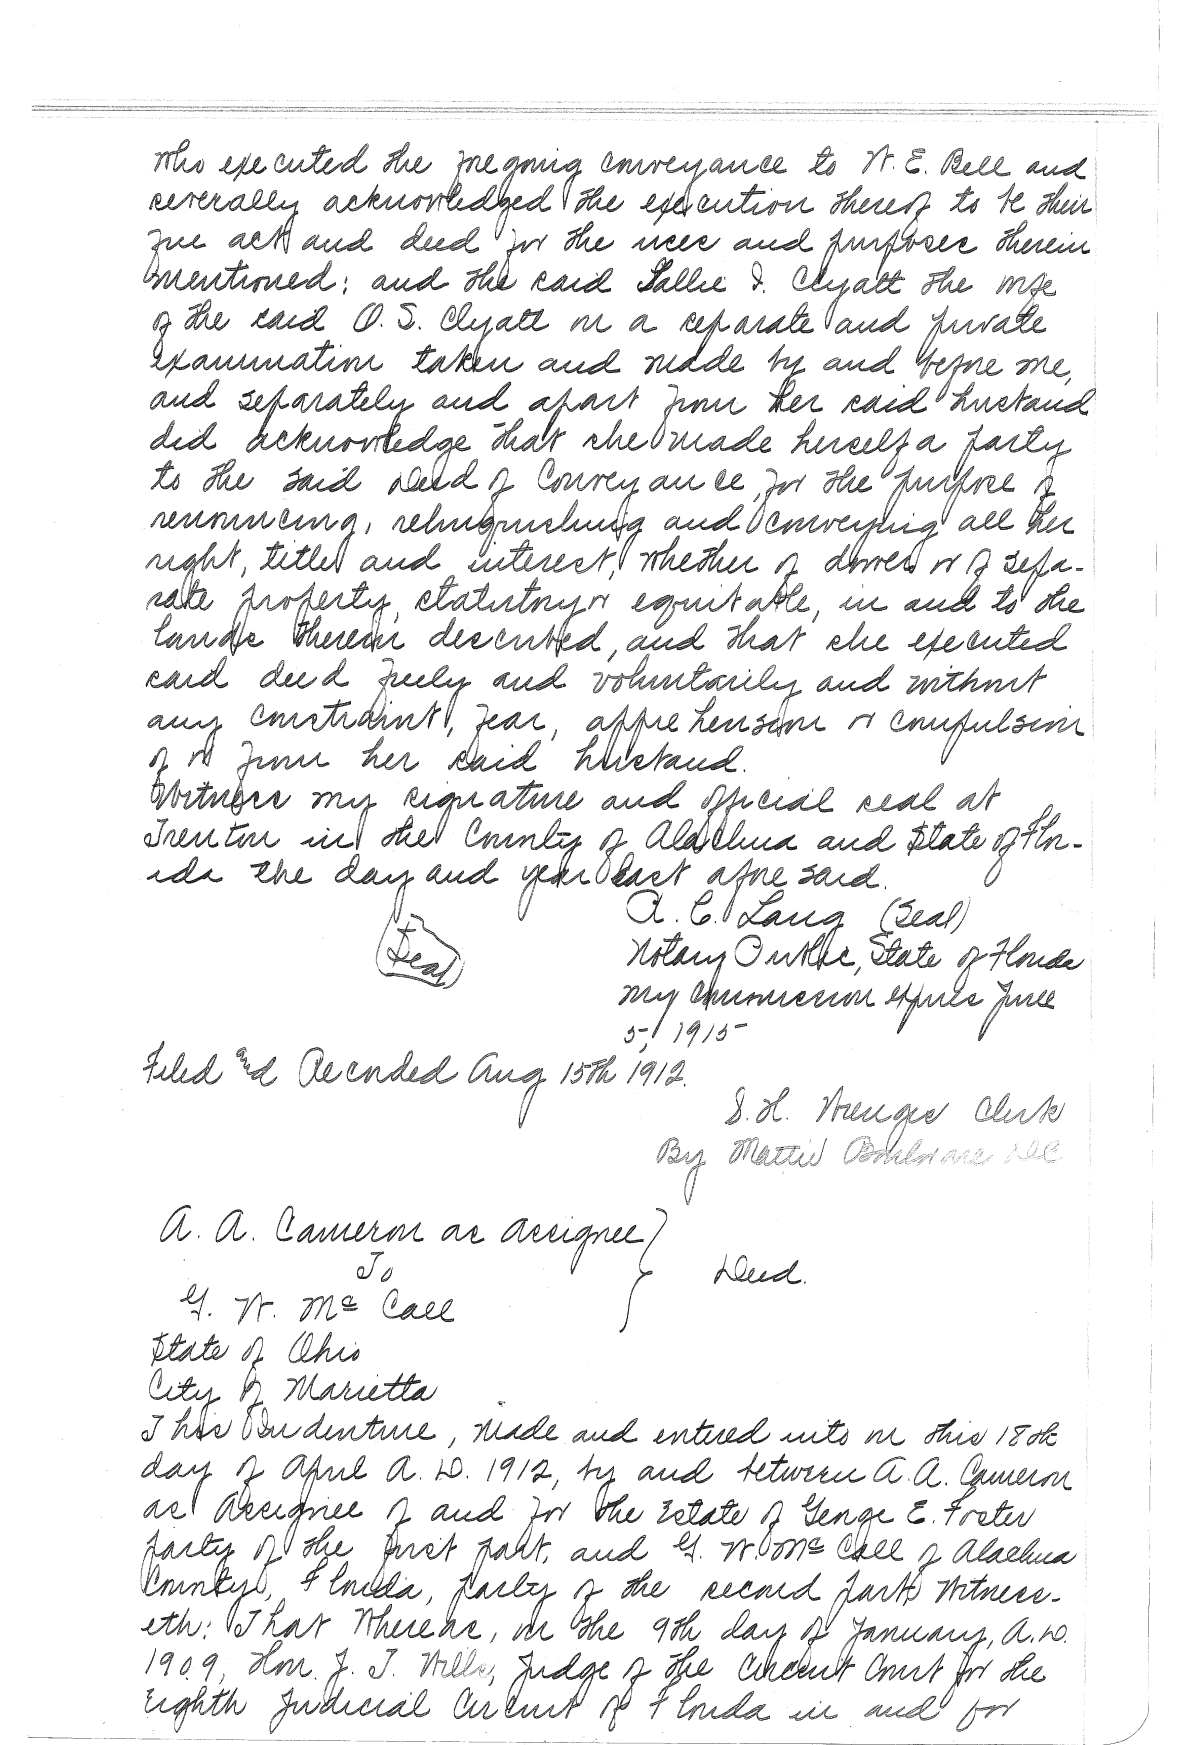 who executed the foregoing conveyance to W. E. Bell and
severally acknowledged the execution thereof to be their
free act and deed for the uses and purposes therein
mentioned; and the said Sallie I. Clyatt the wife
of the said O. S. Clyatt on a separate and private
examination taken and made by and before me,
and separately and apart from her said husband
did acknowledge that she made herself a party
to the said Deed of Conveyance, for the purpose of
renouncing, relinquishing and conveying all her
right, title and interest, whether of dower or of sepa-
rate property, statutory or equitable, in and to the
lands therein described, and that she executed
said deed freely and voluntarily and without
any constraint, fear, apprehension or compulsion
of or from her said husband.
Witness my signature and official seal at
Trenton in the County of Alachua and State of Flor-
ida the day and year last aforesaid.
A. C. Lang (Seal)
(Seal) Notary Public, State of Florida
My Commission expires June
5, 1915
Filed and Recorded Aug 15th 1912.
S. H. Wienges Clerk
By Mattie Boulware DC
A. A. Cameron as Assignee }
To } Deed.
G. W. Mc Call
State of Ohio
City of Marietta
This Indenture, Made and entered into on this 18th
day of April A. D. 1912, by and between A. A. Cameron
as Assignee of and for the Estate of George E. Foster
party of the first part, and G. W. Mc Call of Alachua
County, Florida, party of the second part. Witness-
eth: That Whereas, on the 9th day of January, A. D.
1909, Hon. J. T. Wills, Judge of the Circuit Court for the
Eighth Judicial Circuit of Florida in and for